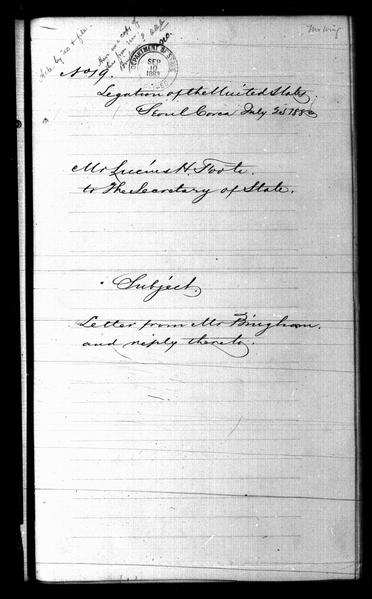 No 19.
DEPARTMENT OF STATE
SEP
10
1883
Legation of the United States
Seoul Corea July 23d 1883
Mr Lucius H. Foote.
to The Secretary of State.
Subject.
Letter from Mr Bingham.
and reply thereto.